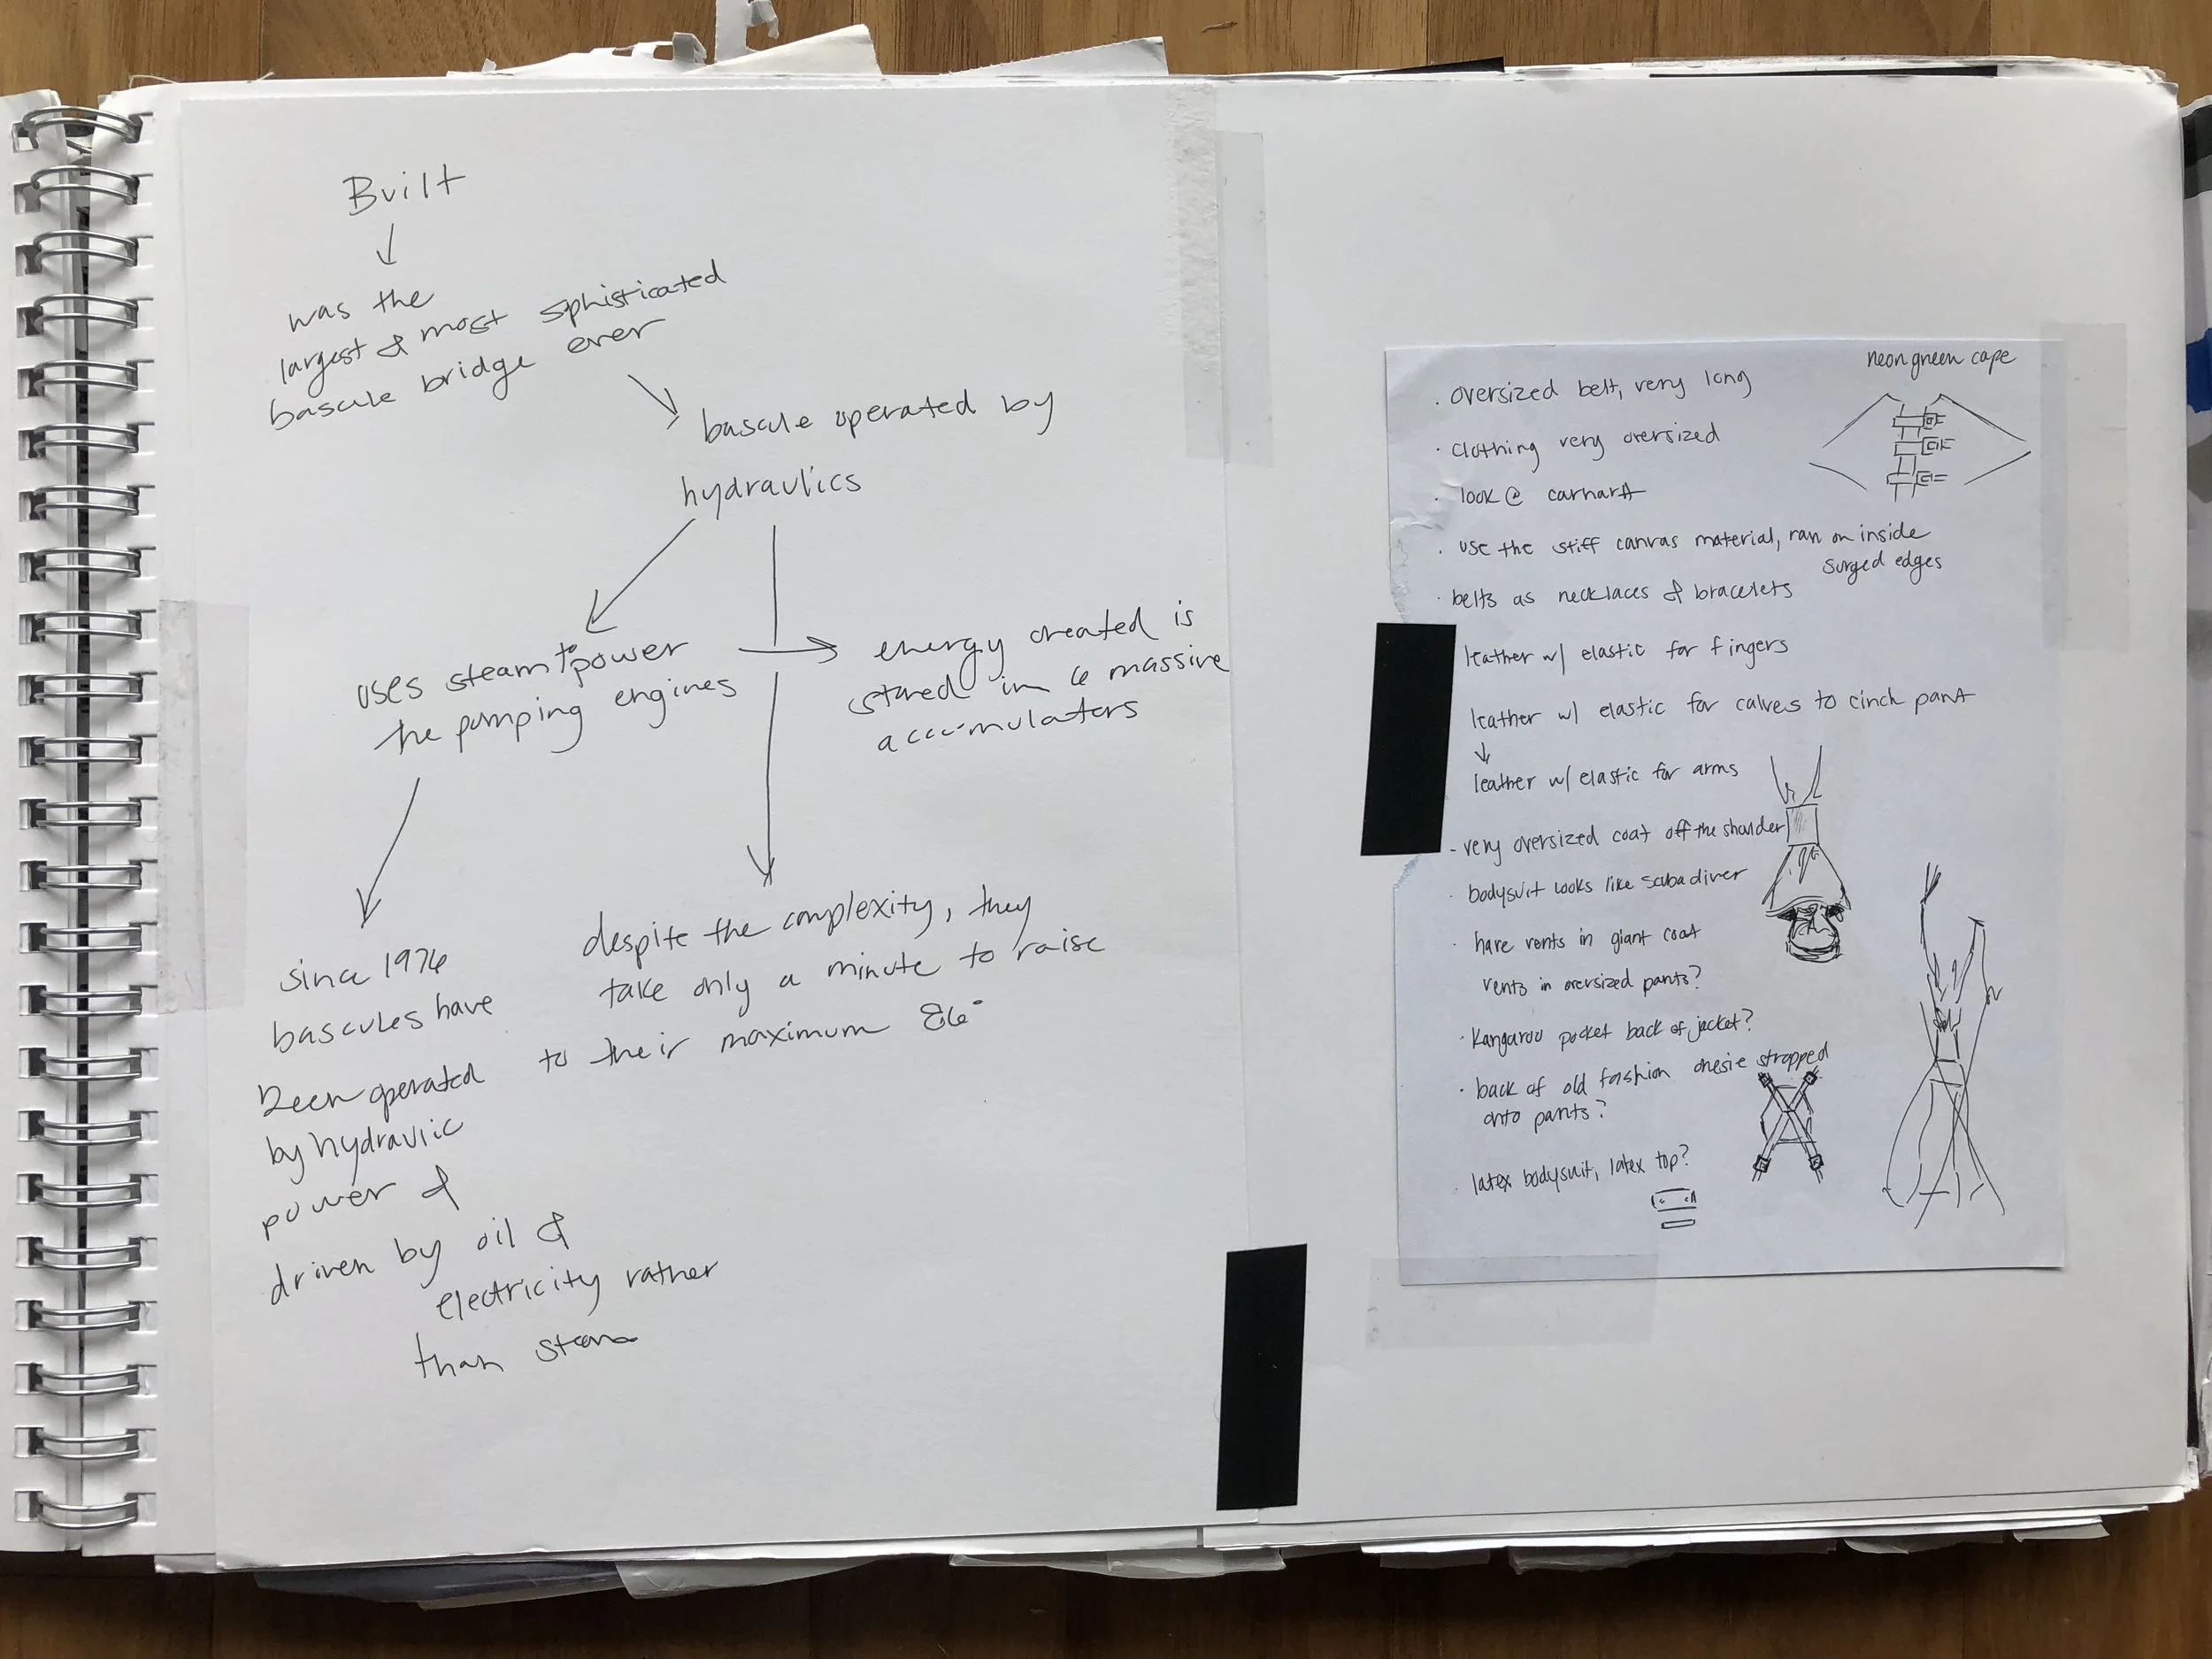 Built
was the
largest & most sphisticated
bascule bridge ever
bascule operated by
hydraulics
uses steam to power
the pumping engines
energy created is
stored in 6 massive
accumulators
since 1976
bascules have
been operated
by hydraulic
power &
driven by oil &
electricity rather
than steam
despite the complexity, they
take only a minute to raise
to their maximum 86°
neon green cape
· oversized belt, very long
· clothing very oversized
· look @ carhartt
· use the stiff canvas material, raw on inside
surged edges
· belts as necklaces & bracelets
leather w/ elastic for fingers
leather w/ elastic for calves to cinch pant
leather w/ elastic for arms
- very oversized coat off the shoulder
· bodysuit looks like scuba diver
· have vents in giant coat
vents in oversized pants?
· Kangaroo pocket back of jacket?
· back of old fashion onesie strapped
onto pants?
· latex bodysuit, latex top?